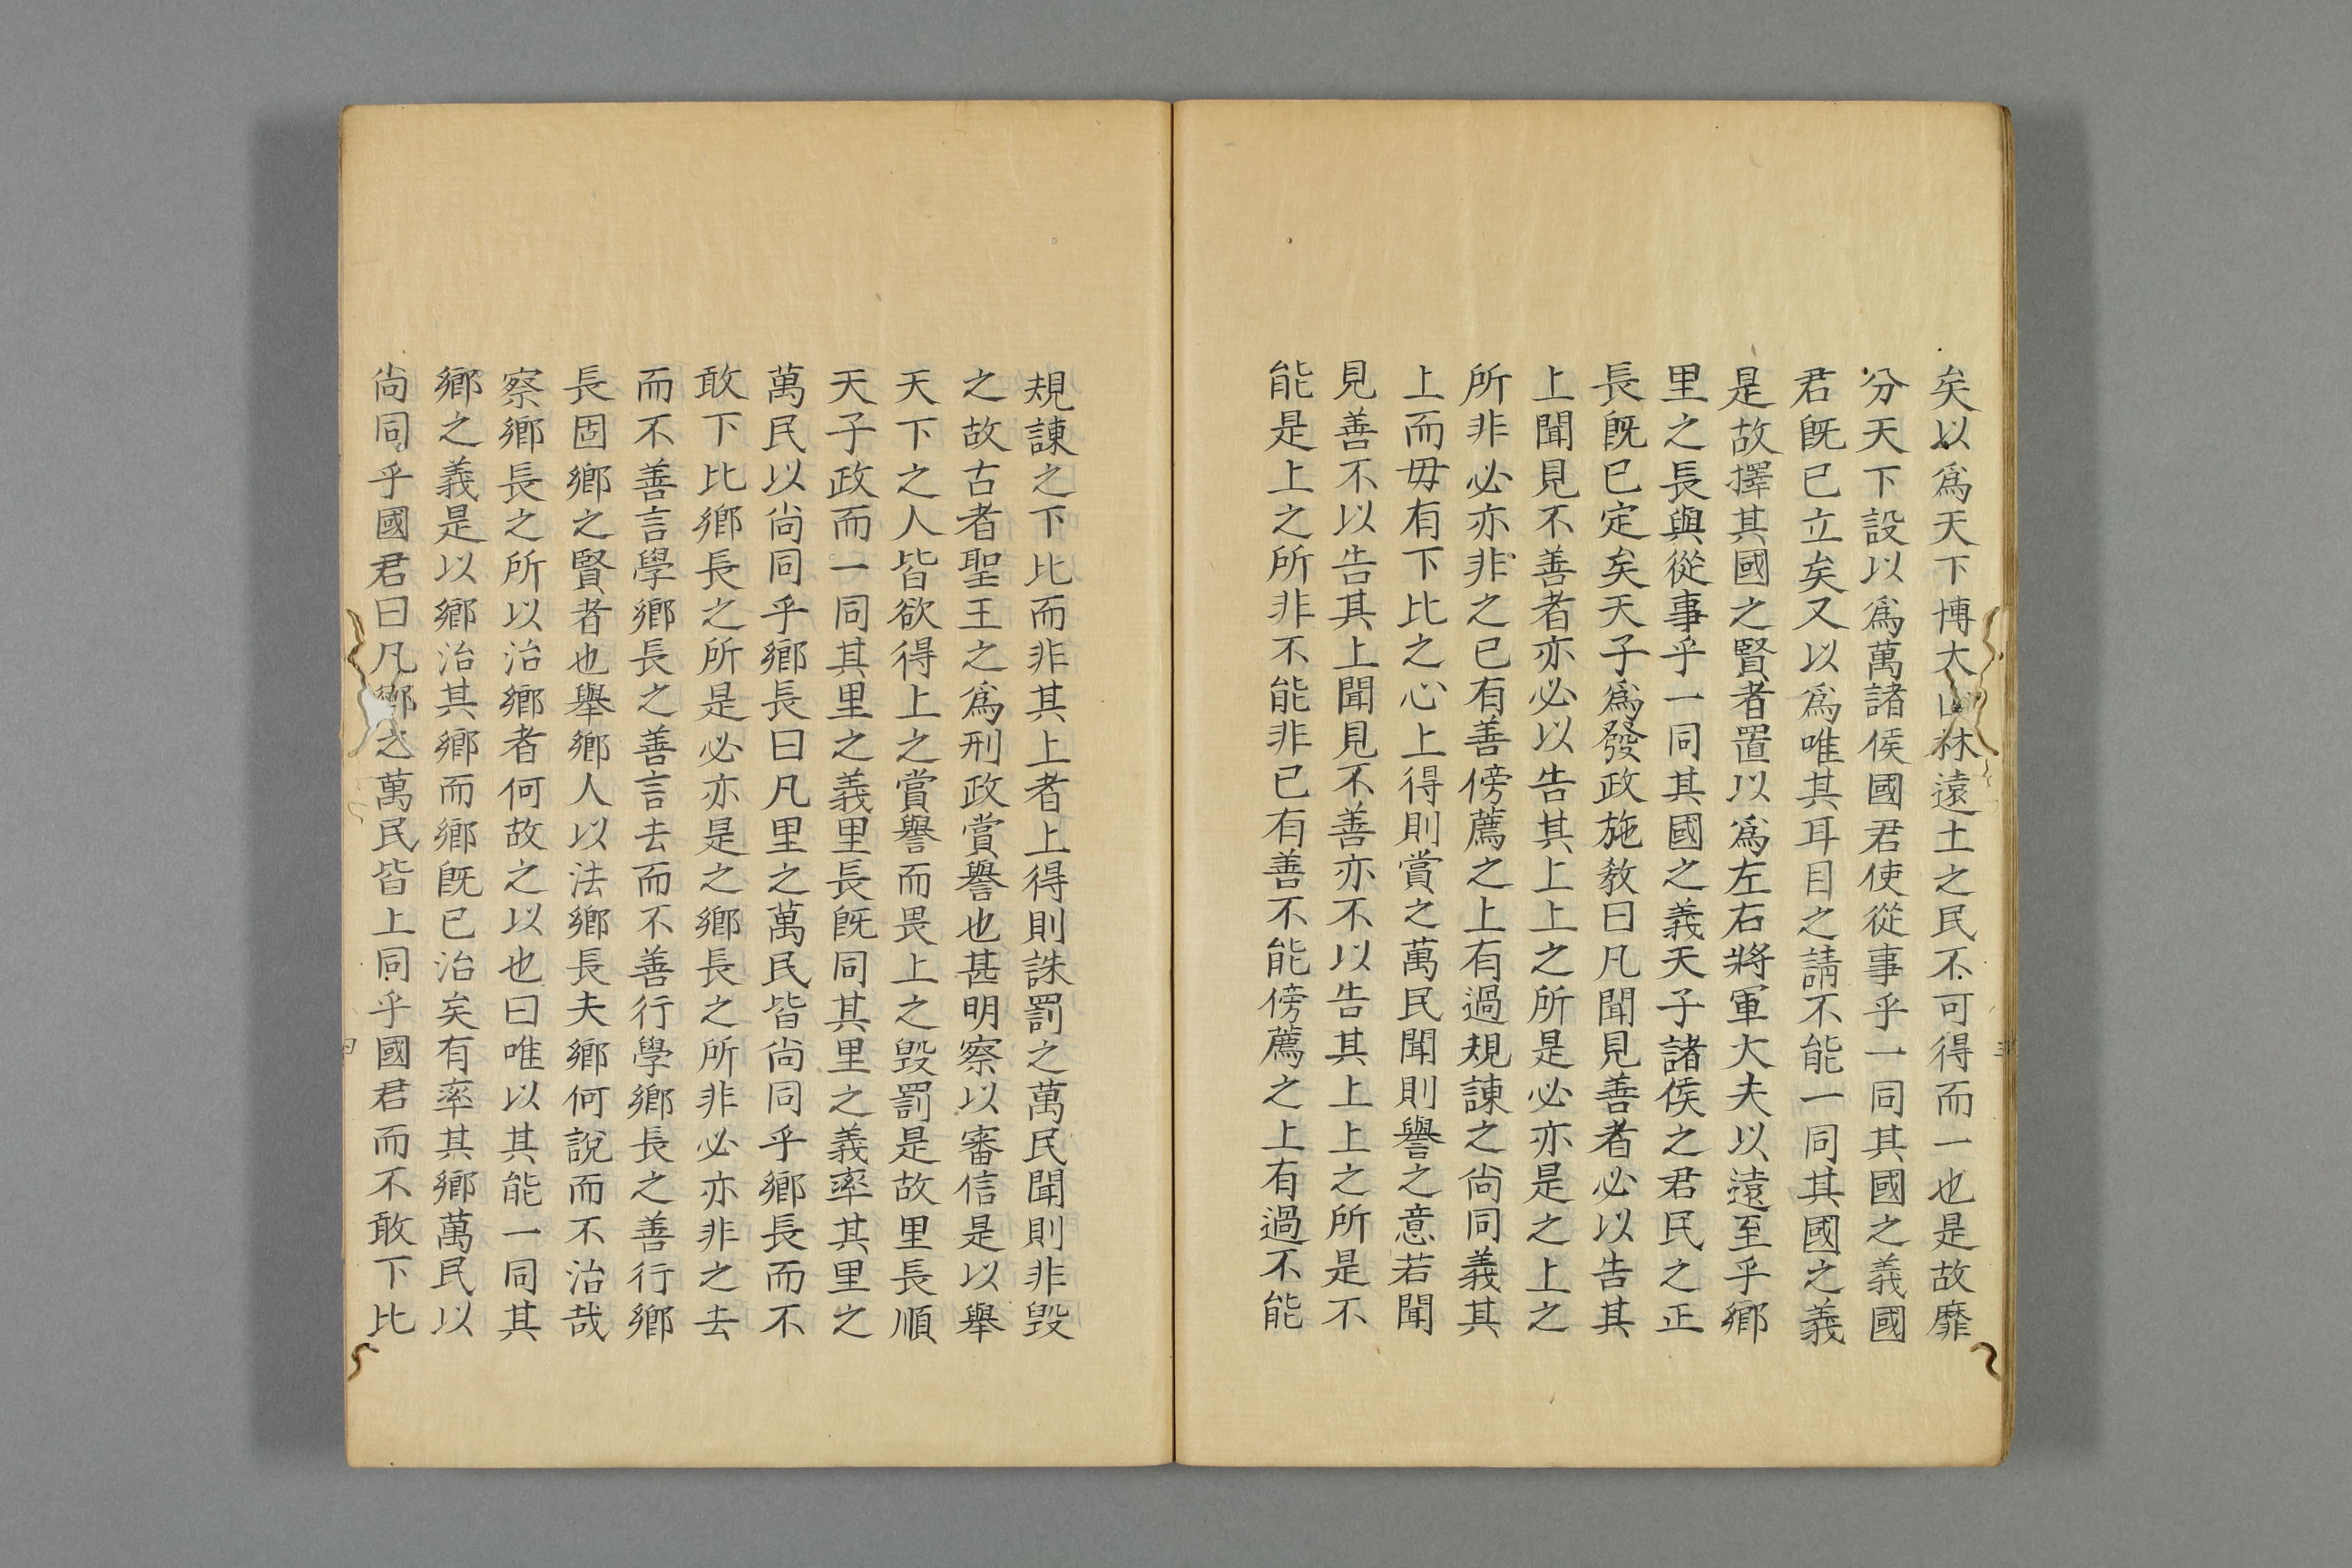 矣以爲天下博大山林遠土之民不可得而一也是故靡
分天下設以爲萬諸侯國君使從事乎一同其國之義國
君旣已立矣又以爲唯其耳目之請不能一同其國之義
是故擇其國之賢者置以爲左右將軍大夫以遠至乎鄉
里之長與從事乎一同其國之義天子諸侯之君民之正
長旣已定矣天子爲發政施敎曰凡聞見善者必以告其
上聞見不善者亦必以告其上上之所是必亦是之上之
所非必亦非之已有善傍薦之上有過規諫之尙同義其
上而毋有下比之心上得則賞之萬民聞則譽之意若聞
見善不以告其上聞見不善亦不以告其上上之所是不
能是上之所非不能非已有善不能傍薦之上有過不能
規諫之下比而非其上者上得則誅罰之萬民聞則非毁
之故古者聖王之爲刑政賞譽也甚明察以審信是以舉
天下之人皆欲得上之賞譽而畏上之毁罰是故里長順
天子政而一同其里之義里長旣同其里之義率其里之
萬民以尙同乎鄉長曰凡里之萬民皆尙同乎鄉長而不
敢下比鄉長之所是必亦是之鄉長之所非必亦非之去
而不善言學鄉長之善言去而不善行學鄉長之善行鄉
長固鄉之賢者也舉鄉人以法鄉長夫鄉何說而不治哉
察鄉長之所以治鄉者何故之以也曰唯以其能一同其
鄉之義是以鄉治其鄉而鄉旣已治矣有率其鄉萬民以
尙同乎國君曰凡鄉之萬民皆上同乎國君而不敢下比